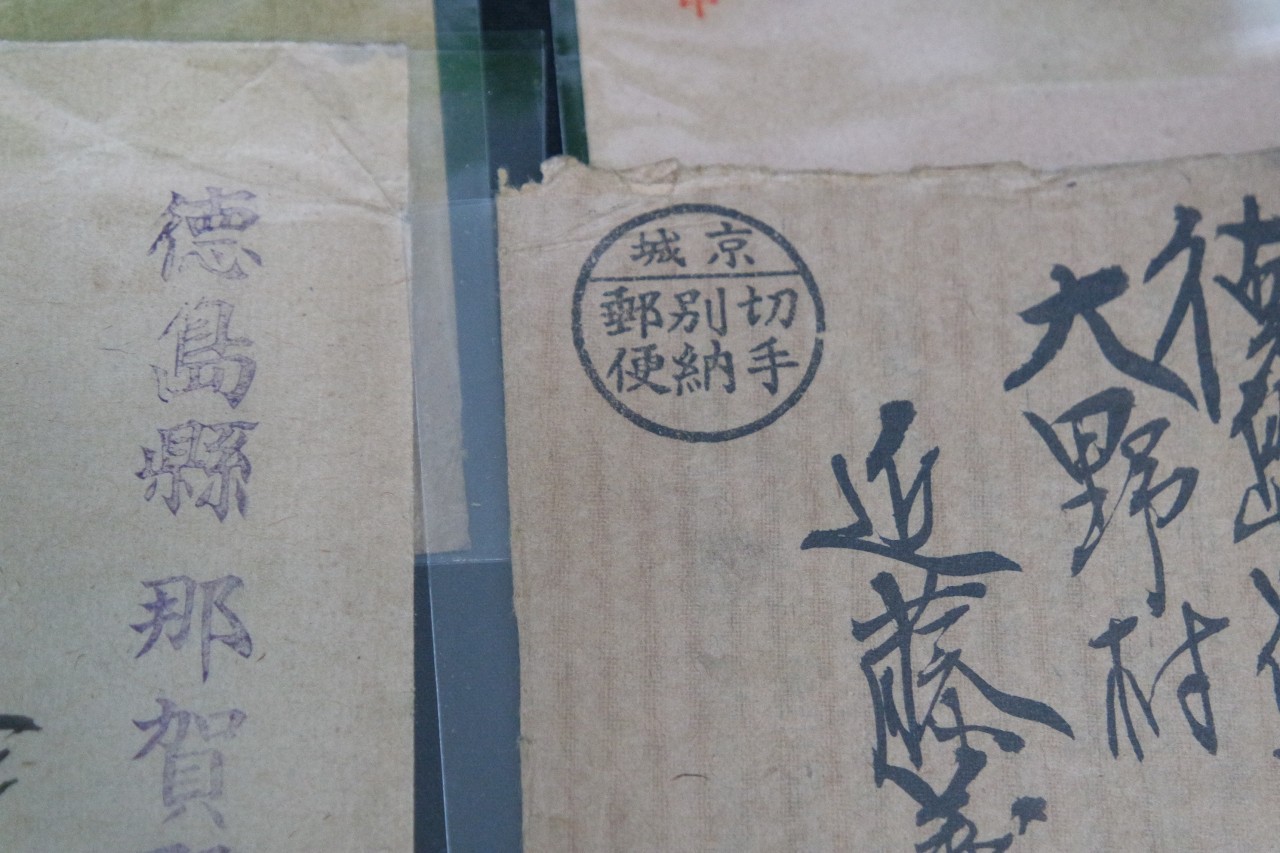 德島縣 那賀
京城
切手
別納
郵便
大野村
近藤